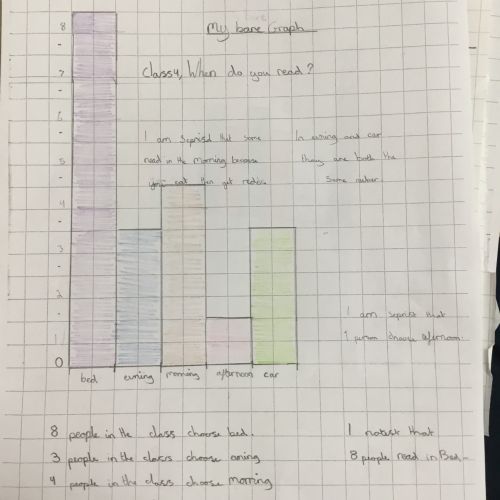 My bare Graph
Classy, When do you read?
8
7
6
5
4
3
2
1
0
I am Seprisd that some
read in the morning because
you eat then get
In evning and car
thay are both the
Same nuber.
I am seprisd that
1 person choose afternoon.
bed evning morning afternoon car
8 people in the class choose bed.
3 people in the class choose
4 people in the class choose morning
I notist that
8 people read in Bed.